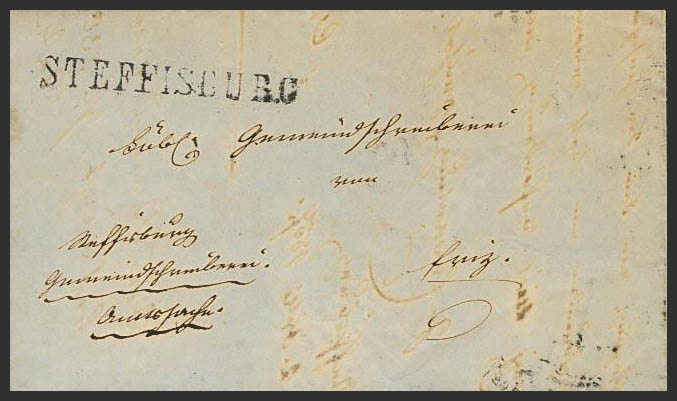 STEFFISBURG
Löbl. Gemeindschreiberei
von
Eriz.
Steffisburg
Gemeindschreiberei.
Amtssache.